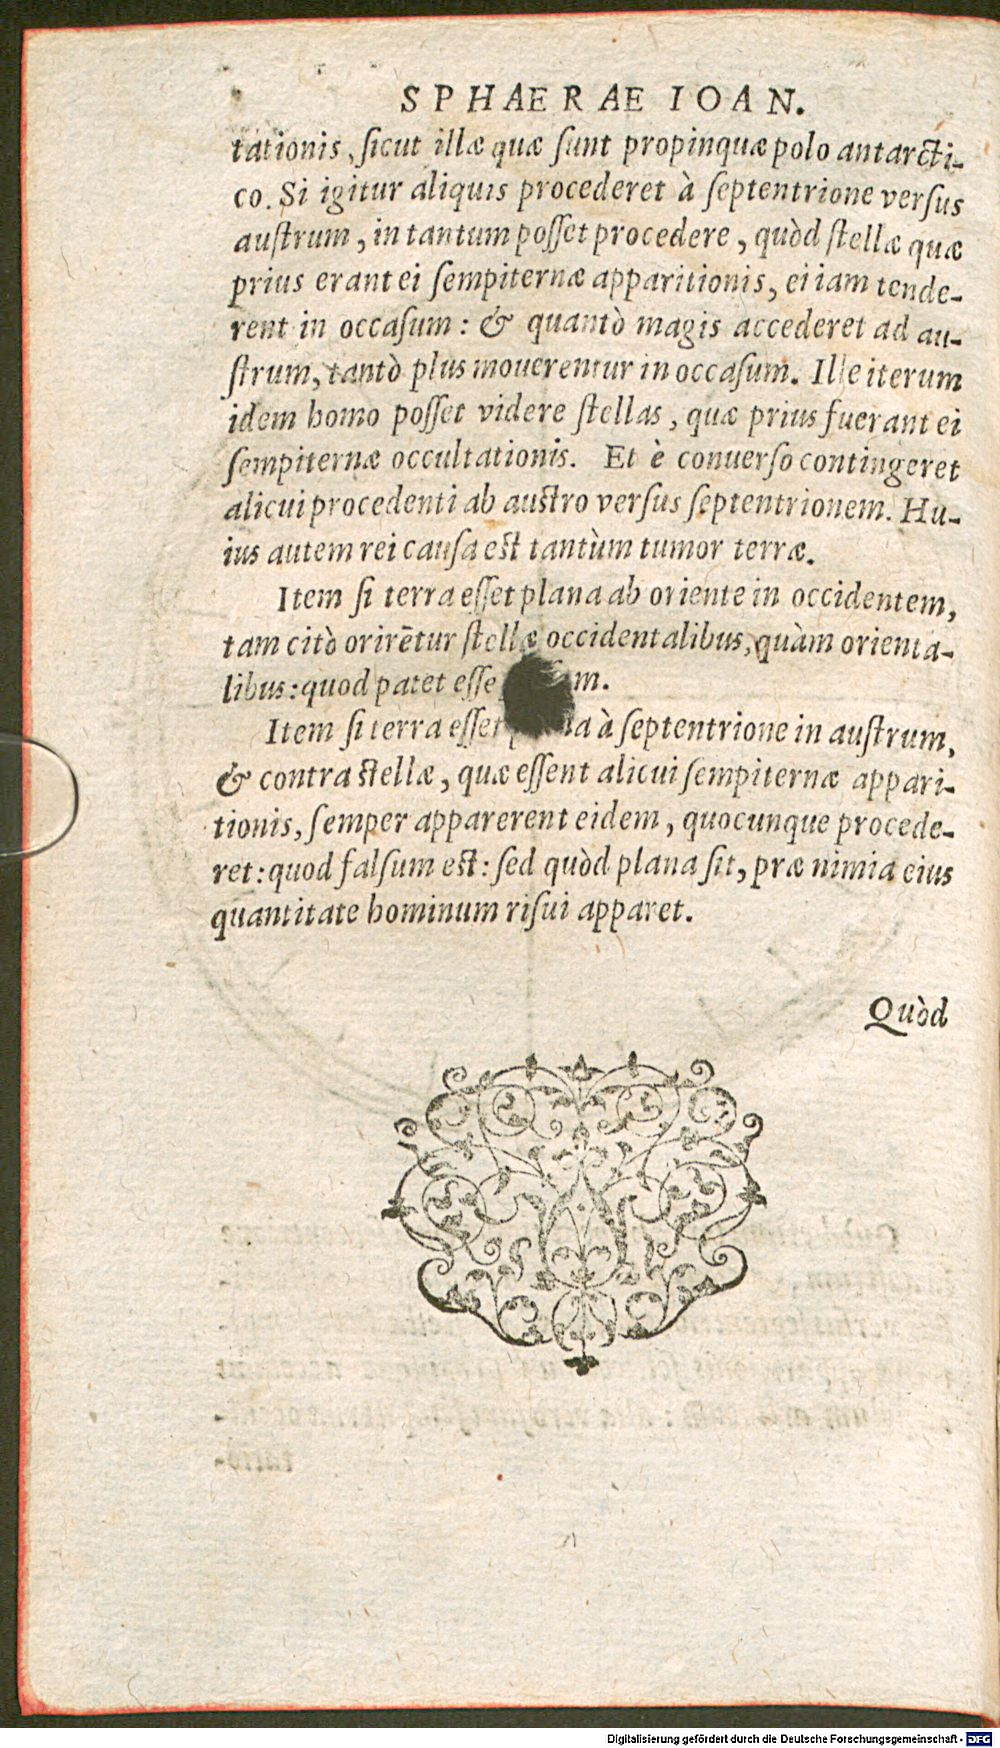 SPHAERAE IOAN.
tationis, sicut illæ quæ sunt propinquæ polo antarcti-
co. Si igitur aliquis procederet à septentrione versus
austrum, in tantum posset procedere, quòd stellæ quæ
prius erant ei sempiternæ apparitionis, ei iam tende-
rent in occasum: & quantò magis accederet ad au-
strum, tantò plus mouerentur in occasum. Ille iterum
idem homo posset videre stellas, quæ prius fuerant ei
sempiternæ occultationis. Et è conuerso contingeret
alicui procedenti ab austro versus septentrionem. Hu-
ius autem rei causa est tantùm tumor terræ.
Item si terra esset plana ab oriente in occidentem,
tam citò orirētur stellæ occidentalibus, quàm orienta-
libus: quod patet esse m.
Item si terra esset à septentrione in austrum,
& contra stellæ, quæ essent alicui sempiternæ appari-
tionis, semper apparerent eidem, quocunque procede-
ret: quod falsum est: sed quòd plana sit, præ nimia eius
quantitate hominum risui apparet.
Quòd
Digitalisierung gefördert durch die Deutsche Forschungsgemeinschaft - DFG